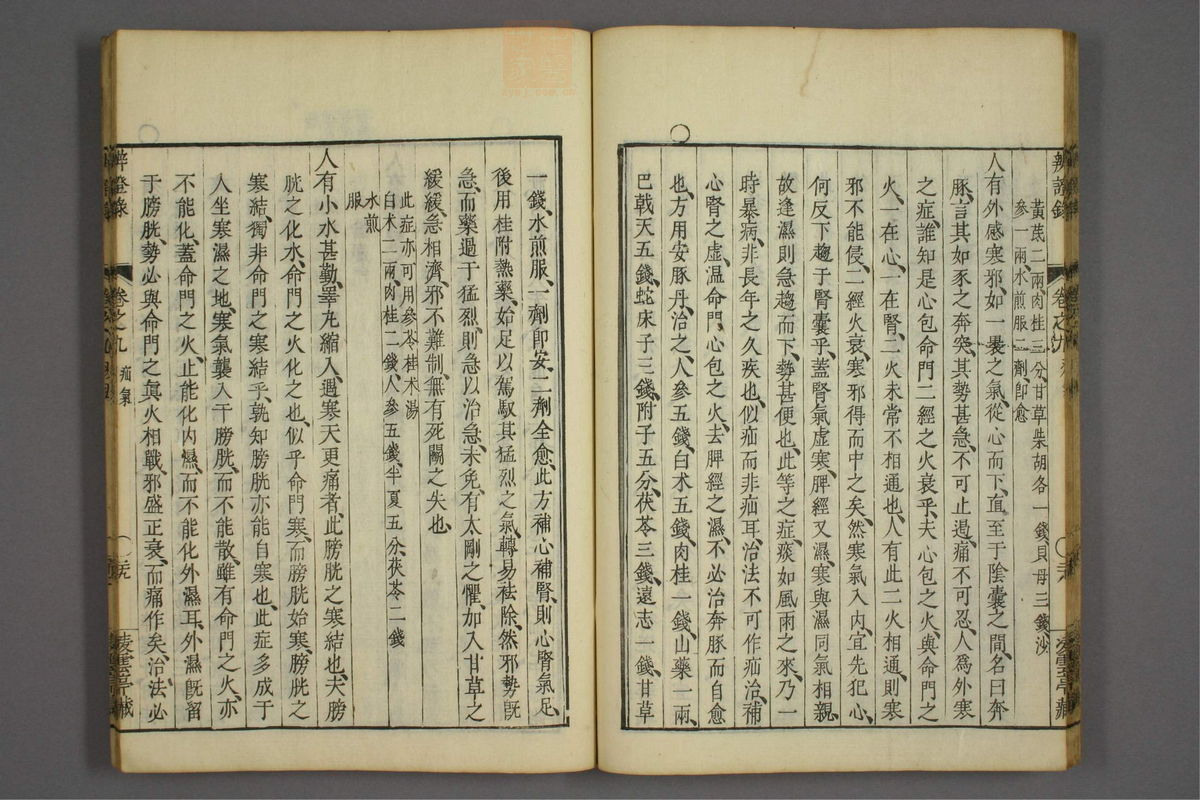 黃芪二兩肉桂三分甘草柴胡各一錢貝母三錢沙
參一兩水煎服二劑即愈
人有外感寒邪如一裹之氣從心而下直至于陰囊之間名曰奔
豚言其如豕之奔突其勢甚急不可止遏痛不可忍人爲外寒
之症誰知是心包命門二經之火衰乎夫心包之火與命門之
火一在心一在腎二火未常不相通也人有此二火相通則寒
邪不能侵二經火衰寒邪得而中之矣然寒氣入內宜先犯心
何反下趨于腎囊乎蓋腎氣虛寒脾經又濕寒與濕同氣相親
故逢濕則急趨而下勢甚便也此等之症痰如風雨之來乃一
時暴病非長年之久疾也似疝而非疝耳治法不可作疝治補
心腎之虛溫命門心包之火去脾經之濕不必治奔豚而自愈
也方用安豚丹治之人參五錢白术五錢肉桂一錢山藥一兩
巴戟天五錢蛇床子三錢附子五分茯苓三錢遠志一錢甘草
一錢水煎服一劑即安二劑全愈此方補心補腎則心腎氣足
後用桂附熱藥始足以駕馭其猛烈之氣轉易祛除然邪勢旣
急而藥過于猛烈則急以治急未免有太剛之懼加入甘草之
緩緩急相濟邪不難制無有死鬬之失也
此症亦可用參苓桂术湯
白术二兩肉桂二錢人參五錢半夏五分茯苓二錢
水煎
服
人有小水甚勤睪丸縮入遇寒天更痛者此膀胱之寒結也夫膀
胱之化水命門之火化之也似乎命門寒而膀胱始寒膀胱之
寒結獨非命門之寒結乎孰知膀胱亦能自寒也此症多成于
人坐寒濕之地寒氣襲入于膀胱而不能散雖有命門之火亦
不能化蓋命門之火止能化內濕而不能化外濕耳外濕旣留
于膀胱勢必與命門之眞火相戰邪盛正衰而痛作矣治法必
辨證錄
卷之九
疝氣
凌雲亭藏